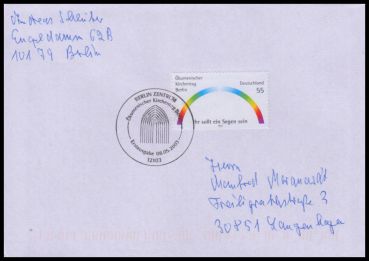 Andreas Schlüter
Engeldamm 62B
10179 Berlin
Ökumenischer
Kirchentag
Berlin
Deutschland
55
Ihr sollt ein Segen sein
BERLIN ZENTRUM
Ökumenischer Kirchentag Berlin
Erstausgabe 08.05.2003
12103
Herrn
Manfred
Freiligrathstraße 3
30851 Langenhagen